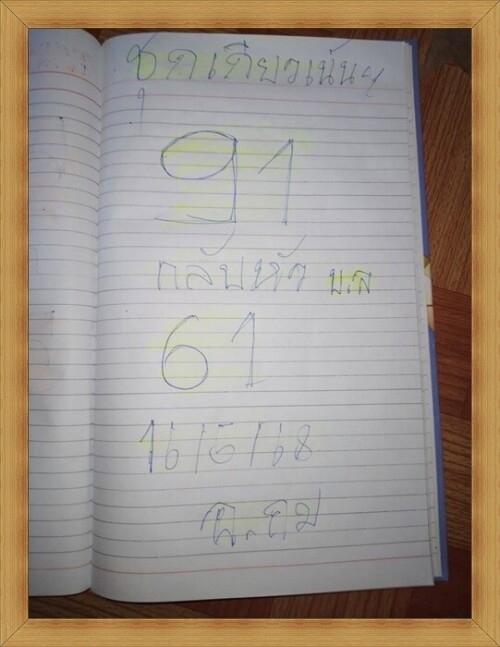 ชุดเดียวเน้นๆ
91
กลับหัว บ.ล
61
16/6/68